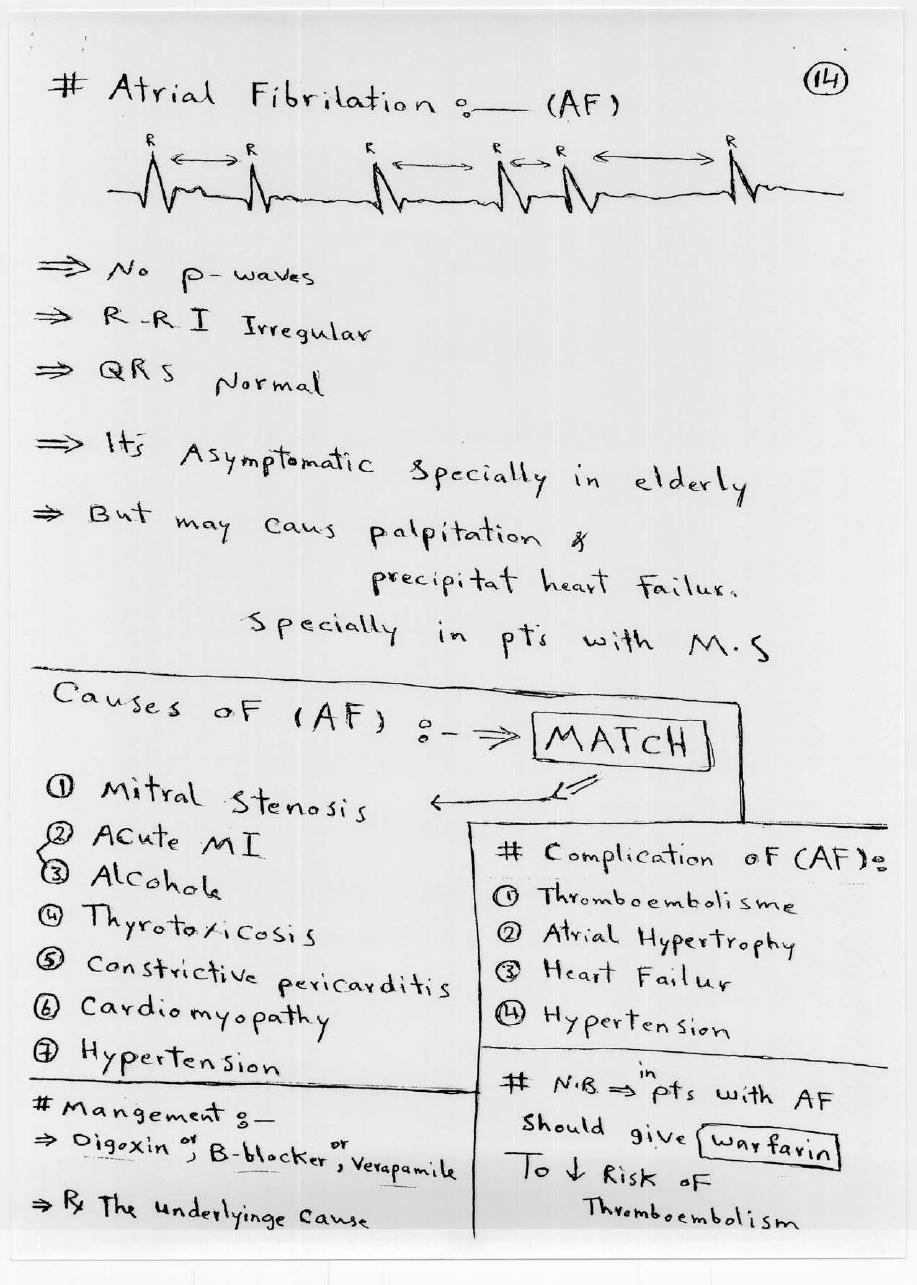 14
# Atrial Fibrilation :— (AF)
R R R R R R
⇒ No p-waves
⇒ R-R I Irregular
⇒ QRS Normal
⇒ It's Asymptomatic specially in elderly
⇒ But may caus palpitation &
precipitat heart Failur.
specially in pt's with M.S
Causes of (AF) :- ⇒ MATCH
① Mitral Stenosis
② Acute MI
③ Alcohole
④ Thyrotoxicosis
⑤ Constrictive pericarditis
⑥ Cardiomyopathy
⑦ Hypertension
# Complication of (AF):
① Thromboembolisme
② Atrial Hypertrophy
③ Heart Failur
④ Hypertension
# Mangement :-
⇒ Digoxin or, B-blocker or, Verapamile
⇒ Rx The underlyinge cause
# N.B ⇒ in pts with AF
should give warfarin
To ↓ Risk of
Thromboembolism